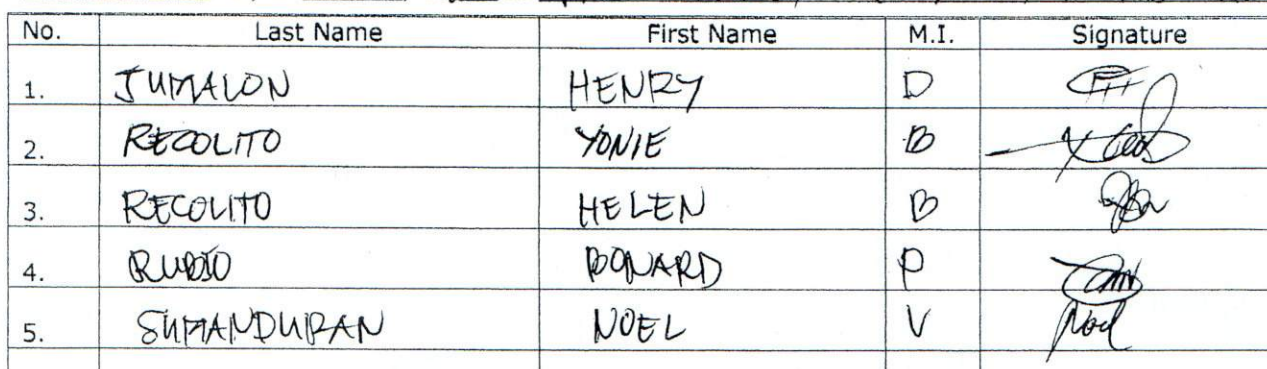 No. Last Name First Name M.I. Signature
1. JUMALON HENRY D
2. RECOLITO YONIE B
3. RECOLITO HELEN B
4. RUBIO BONARD P
5. SUMANDURAN NOEL V Noel